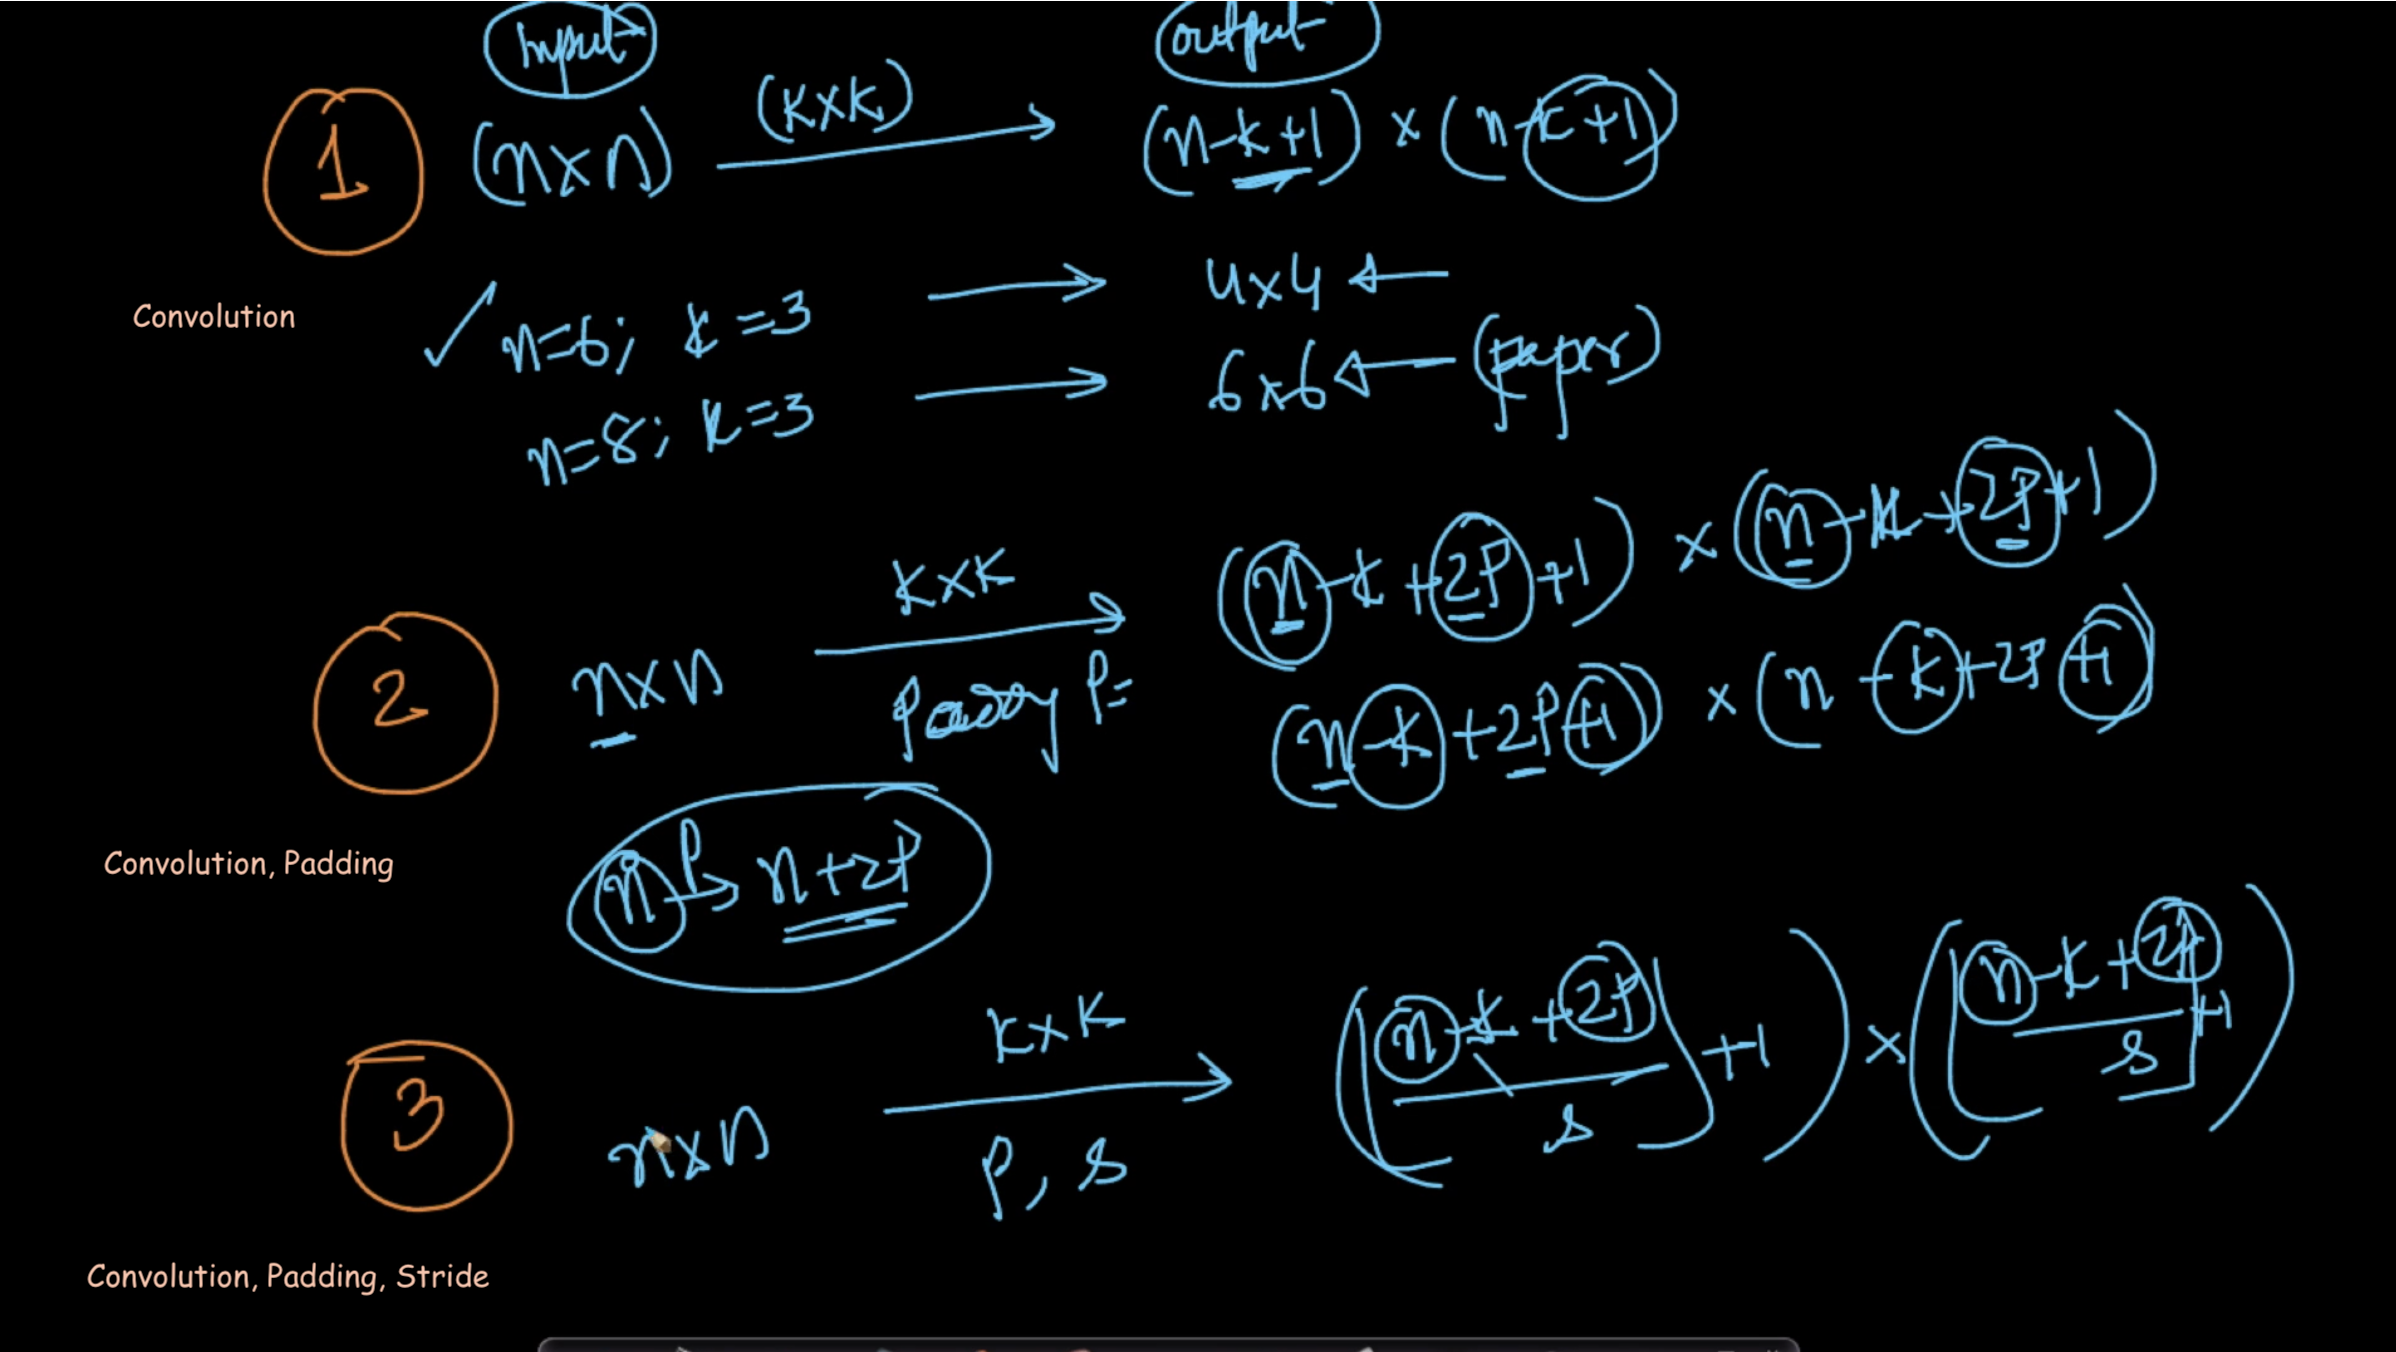 Input output
1 (n×n) (k×k) (n-k+1) × (n-k+1)
Convolution
n=6; k=3 4×4
n=8; k=3 6×6 (paper)
2 n×n k×k (n-k+2p+1) × (n-k+2p+1)
p= (n-k+2p+1) × (n-k+2p+1)
Convolution, Padding
n p n+2p
3 n×n k×k ([n-k+2p/s]+1) × ([n-k+2p/s]+1)
p, s
Convolution, Padding, Stride